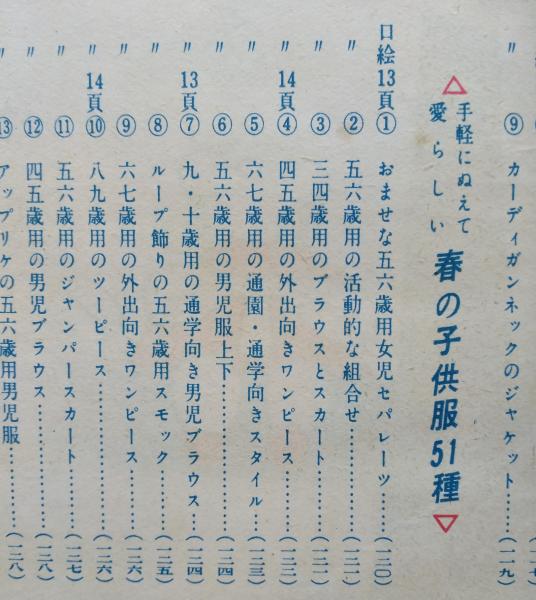 〃 ⑨ カーディガンネックのジャケット……(一一九)
手軽にぬえて
愛らしい
春の子供服51種
口絵13頁 ① おませな五六歳用女児セパレーツ……(一二〇)
〃 ② 五六歳用の活動的な組合せ……(一二一)
〃 ③ 三四歳用のブラウスとスカート……(一二二)
〃 14頁 ④ 四五歳用の外出向きワンピース……(一二三)
〃 ⑤ 六七歳用の通園・通学向きスタイル……(一二三)
〃 ⑥ 五六歳用の男児服上下……(一二四)
〃 13頁 ⑦ 九・十歳用の通学向き男児ブラウス……(一二四)
〃 ⑧ ループ飾りの五六歳用スモック……(一二五)
〃 ⑨ 六七歳用の外出向きワンピース……(一二六)
〃 14頁 ⑩ 八九歳用のツーピース……(一二六)
〃 ⑪ 五六歳用のジャンパースカート……(一二七)
〃 ⑫ 四五歳用の男児ブラウス……(一二八)
〃 ⑬ アップリケの五六歳用男児服……(一二八)